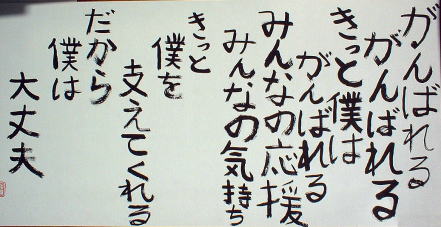 がんばれる
がんばれる
きっと僕は
がんばれる
みんなの応援
みんなの気持ち
きっと
僕を
支えてくれる
だから
僕は
大丈夫